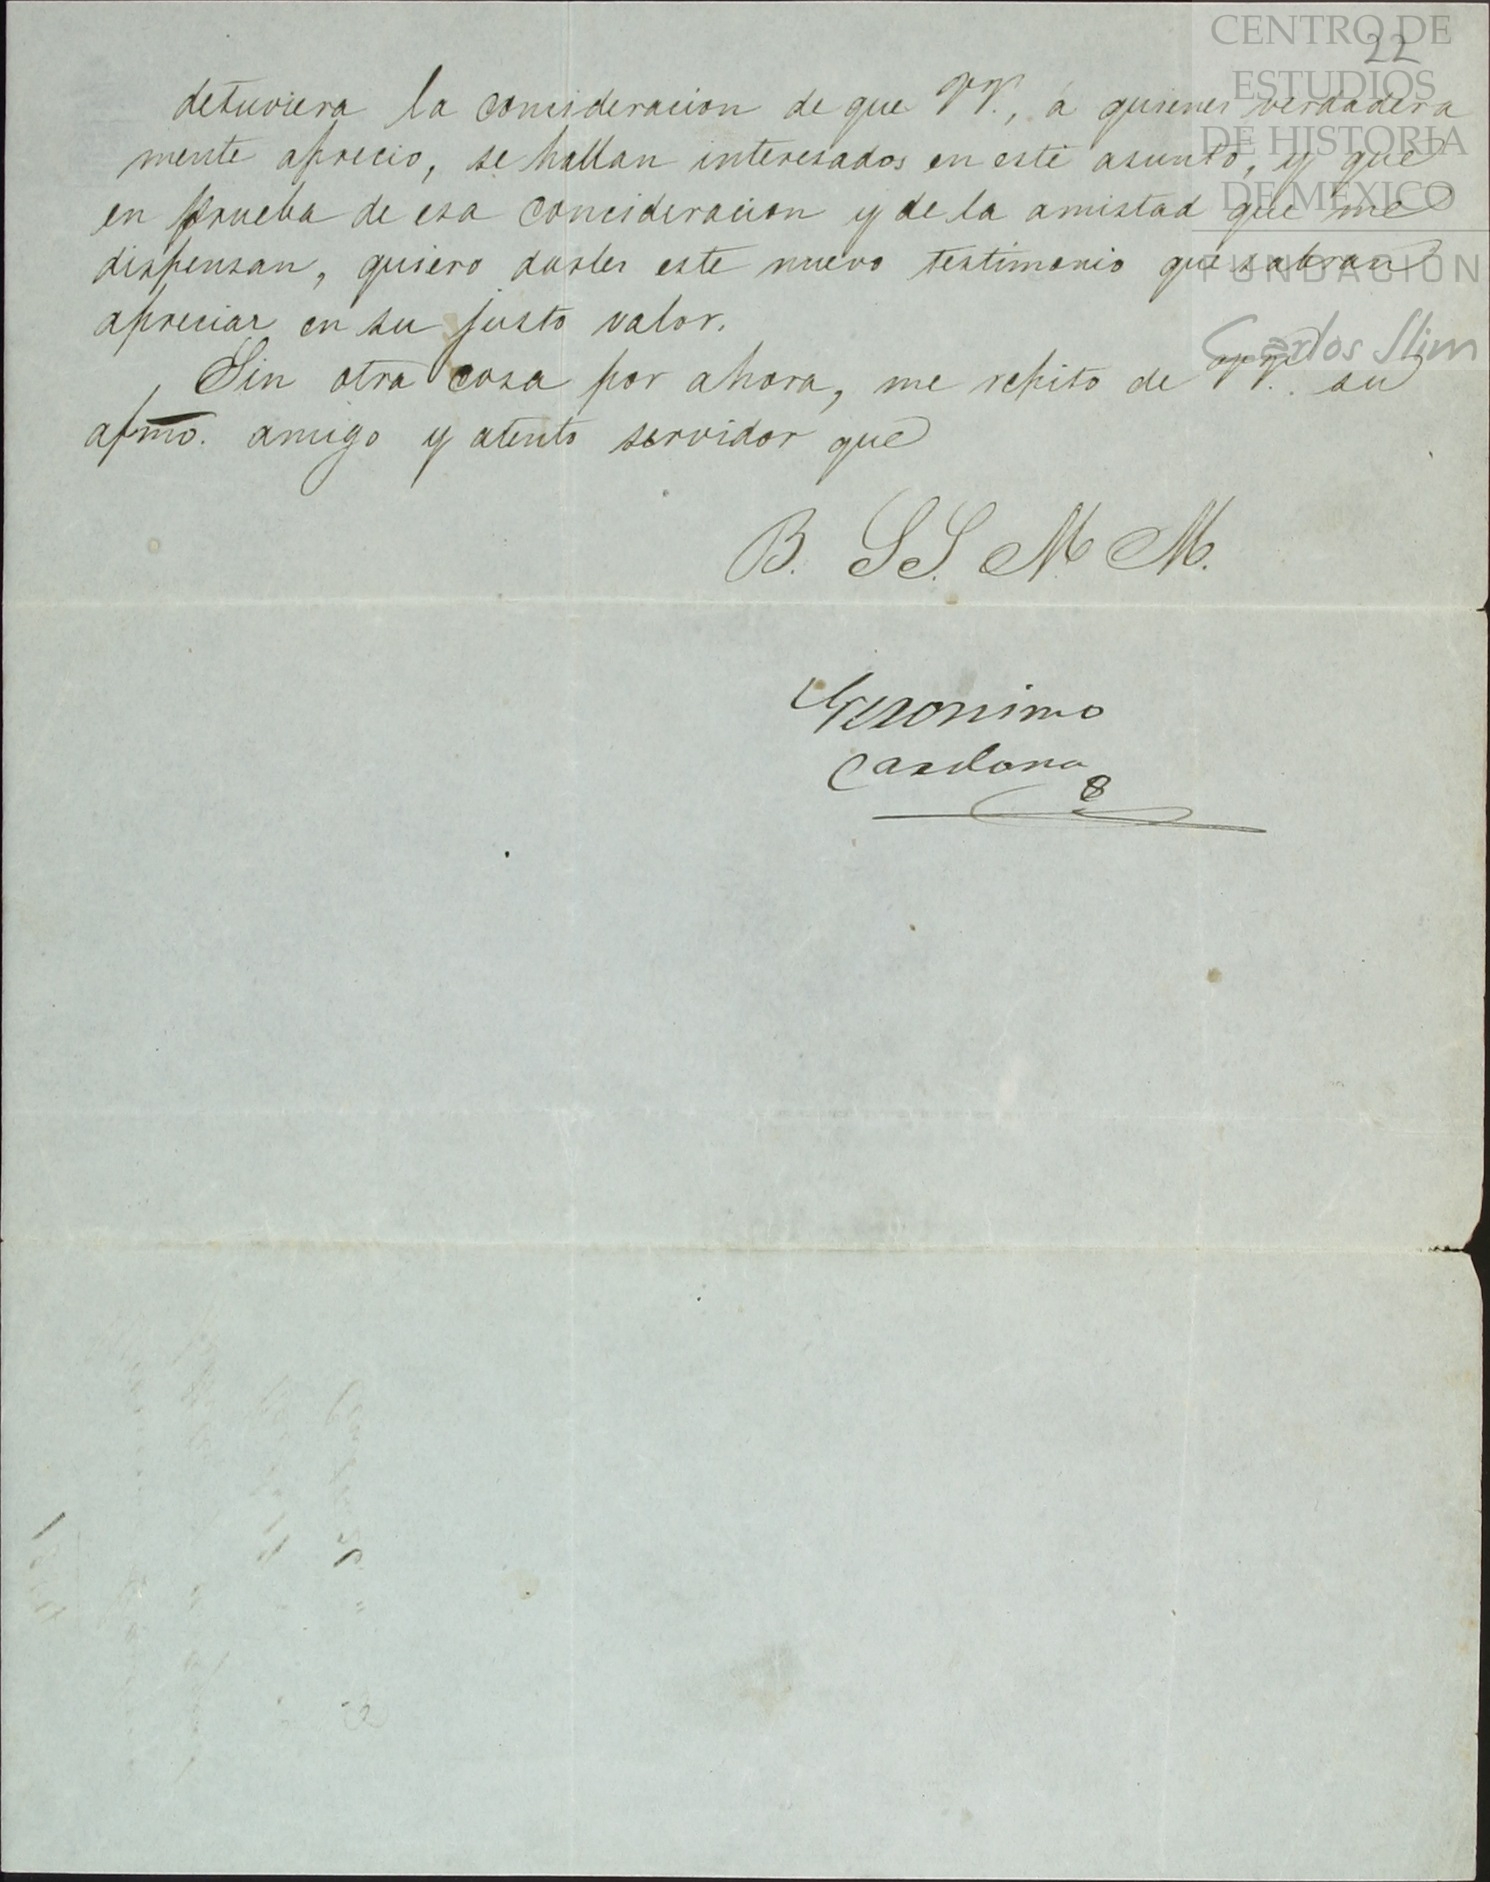 22
detuviera la concideracion de que VV., á quienes verdadera
mente aprecio, se hallan interesados en este asunto, y que
en prueba de esa concideracion y de la amistad que me
dispensan, quiero darles este nuevo testimonio que sabran
apreciar en su justo valor.
Sin otra cosa por ahora, me repito de VV. su
afmo. amigo y atento servidor que
B. S.S. M. M.
Geronimo
Cardona
CENTRO DE
ESTUDIOS
DE HISTORIA
DE MÉXICO
FUNDACIÓN
Carlos Slim